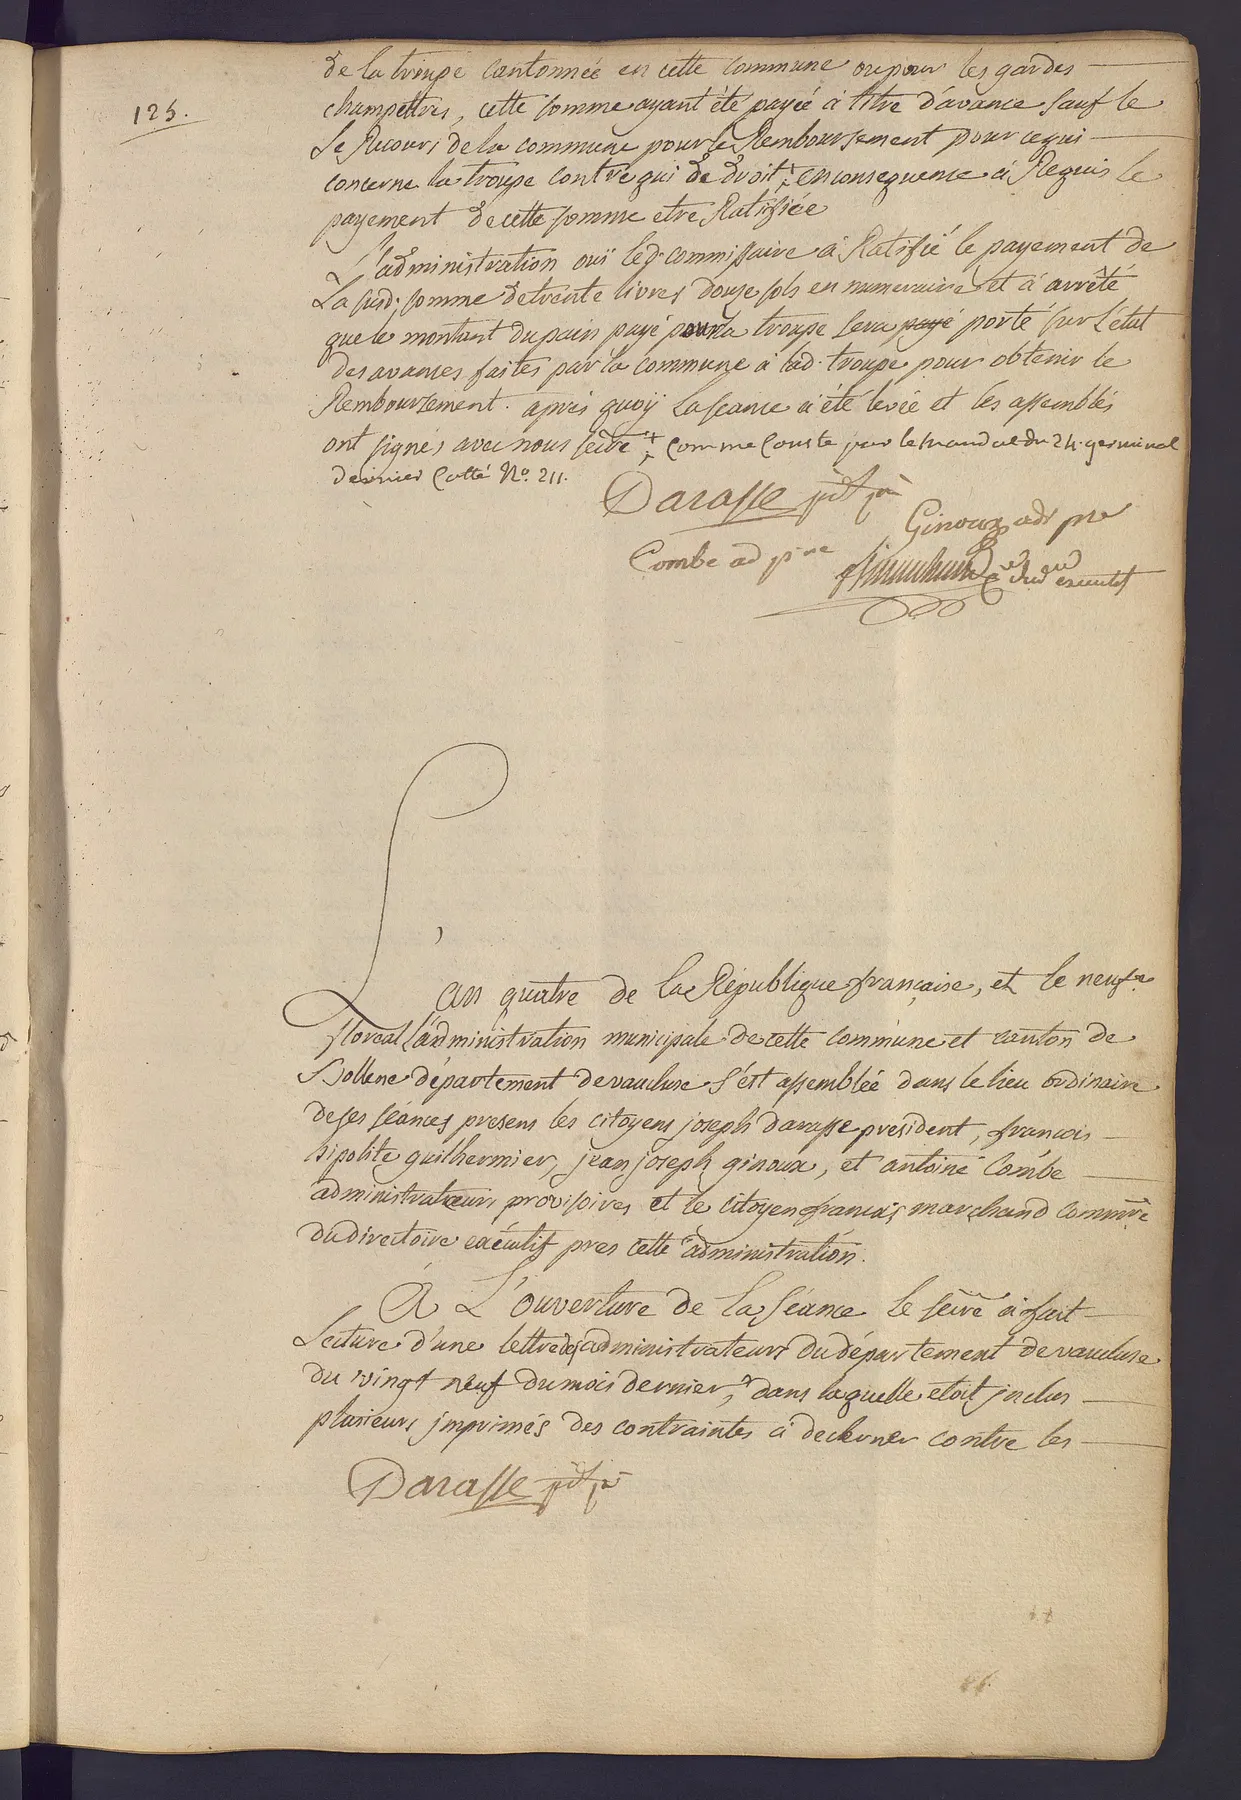 125.
de la troupe cantonnée en cette commune ou pour les gardes
champettres, cette somme ayant été payée à titre d'avance sauf le
le Recours de la commune pour le Remboursement pour ce qui
concerne la troupe contre qui de droit; en consequence à Requis le
payement de cette somme etre Ratifiée
L'administration oui led. commissaire à Ratifié le payement de
La sud. somme de trente livres douze sols en numeraire et à arrêté
que le montant du pain payé pour la troupe sera payé porté sur l'état
des avances faites par la commune à lad. troupe pour obtenir le
Remboursement. après quoÿ la séance à été levée et les assemblés
ont signés avec nous secre + comme conste par le mandat du 24 germinal
dernier cotté No. 211.
Darasse pdt
Ginoux adt pre
Combe ad pre
executif
L'an quatre de la République française, et le neuf
floréal l'administration municipale de cette commune et canton de
Bollene département de vaucluse s'est assemblée dans le lieu ordinaire
de ses séances presens les citoyens joseph darasse président, françois
hipolite guilhermier, jean joseph ginoux, et antoine Combe
administrateurs provisoires et le citoyen françois marchand commre
du directoire exécutif pres cette administration.
A L'ouverture de la séance le secre à fait
Lecture d'une lettre des administrateurs du département de vaucluse
du vingt neuf du mois dernier, dans laquelle etoit inclus
plusieurs jmprimés des contraintes à decerner contre les
Darasse pdt